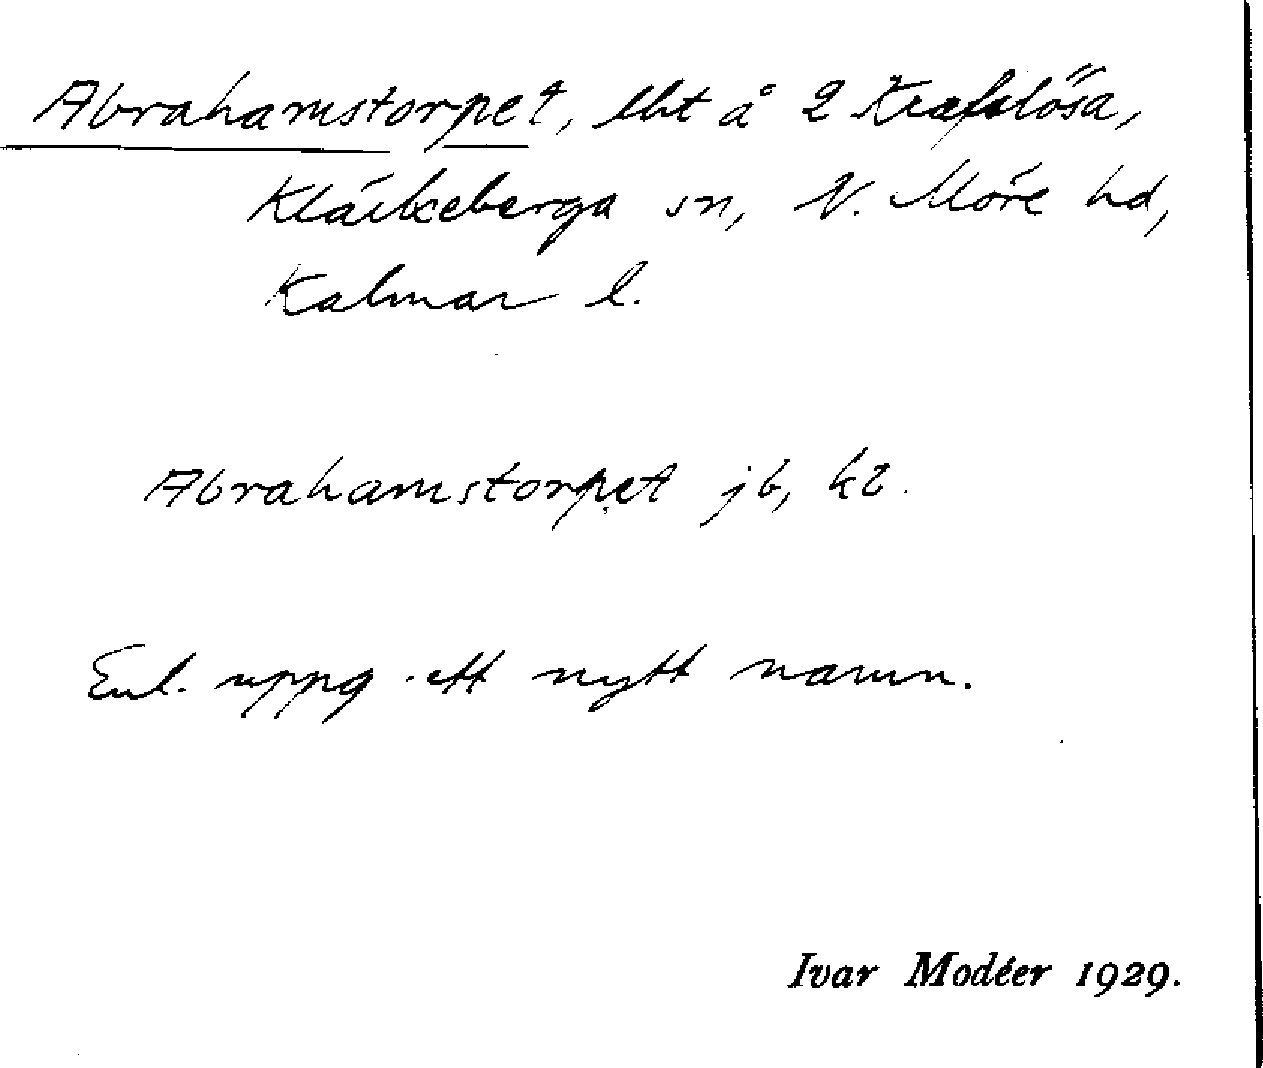 Abrahamstorpet, lht å 2 Krafslösa,
Kläckeberga sn, N. Möre hd,
Kalmar l.
Abrahamstorpet jb, kb.
Enl. uppg. ett nytt namn.
Ivar Modéer 1929.